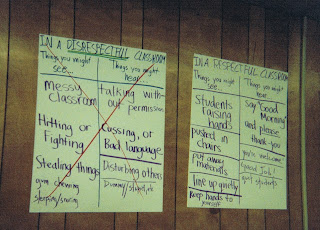 IN A DISRESPECTFUL CLASSROOM
Things you might
see...
Messy
classroom
Hitting or
Fighting
Stealing things
gum chewing
sleeping/snoring
Things you might
hear
talking with-
out permission
Cussing, or
Bad language
Disturbing others
IN A RESPECTFUL CLASSROOM
Things you might
see
Students
raising
hands
pushed in
chairs
put away
materials
line up quietly
Keep hands to
yourself
Things you might
hear
say "Good
Morning"
and please
thank you
you're welcome